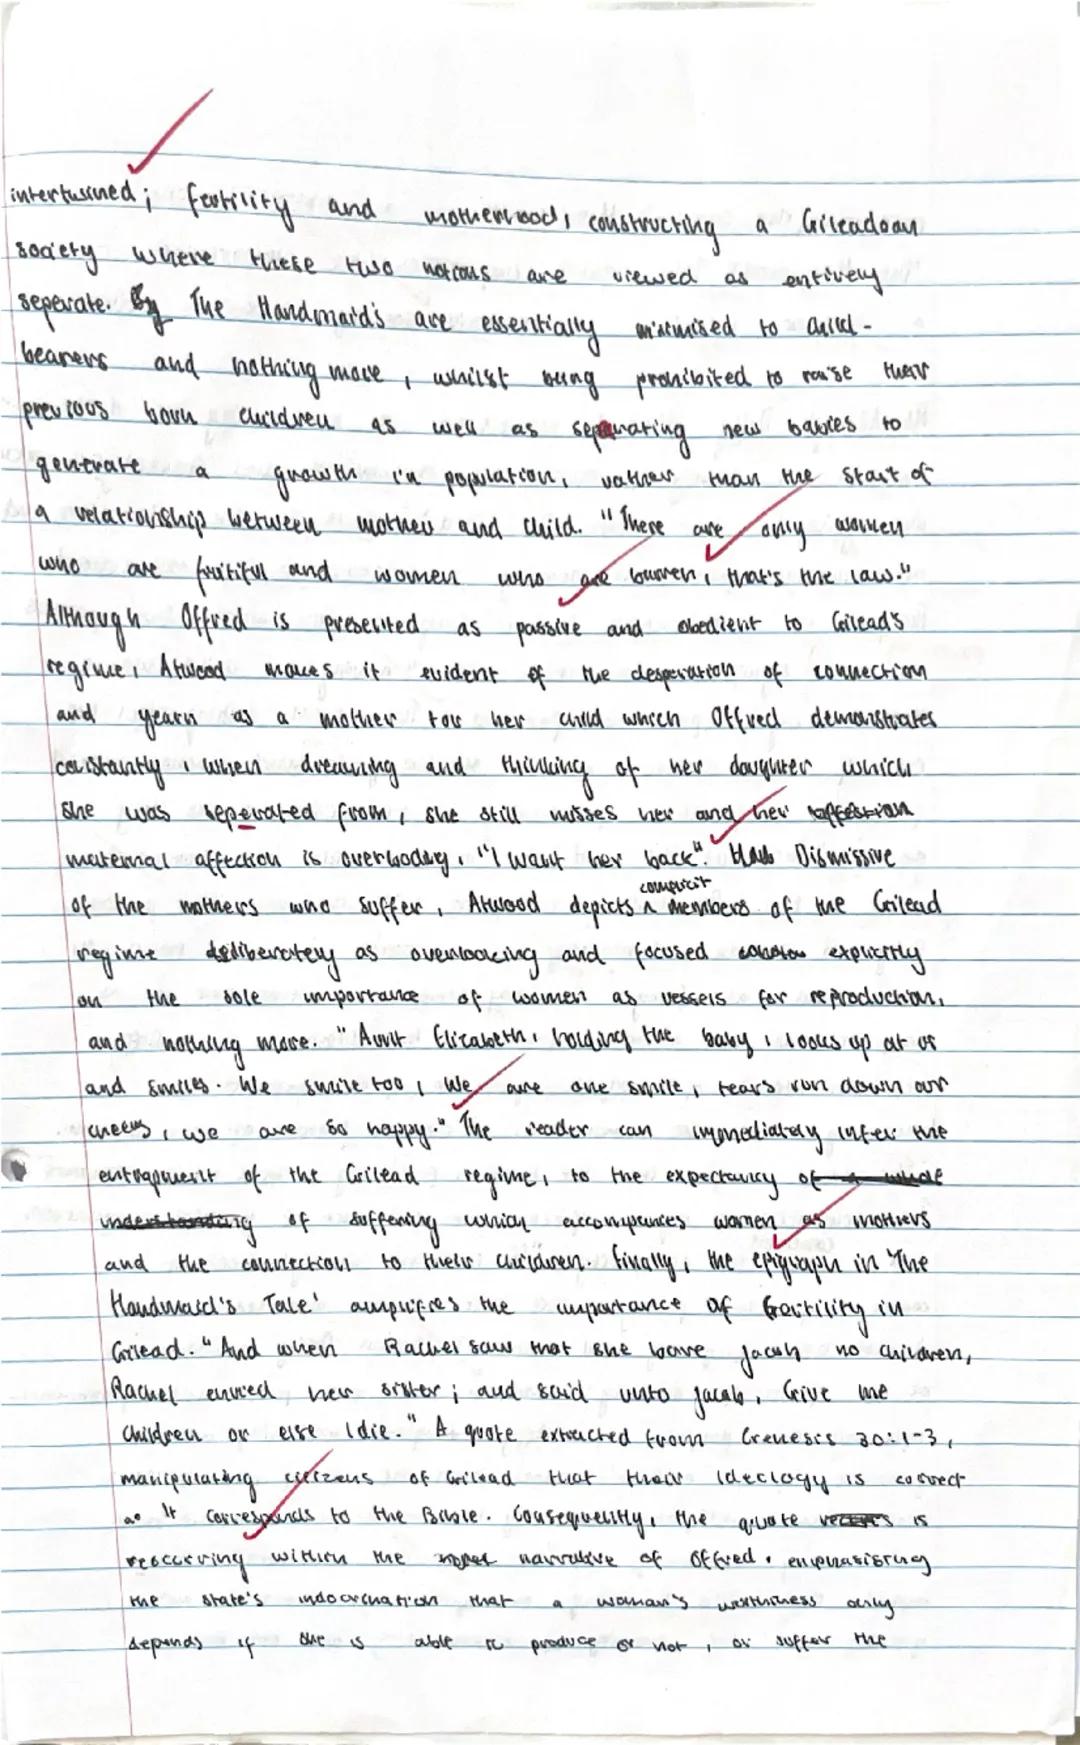 intertwined; fertility and motherhood, constructing a Gileadean
society where these two notions are viewed as entirely
seperate. By The Handmaid's are essentially minimised to child-
bearers and nothing more, whilst being prohibited to raise their
previous born children as well as separating new babies to
generate a growth in population, rather than the start of
a relationship between mother and child. "There are only women
who are fruitiful and women who are barren, that's the law."
Although Offred is presented as passive and obedient to Gilead's
regime, Atwood makes it evident of the desperation of connection
and yearn as a mother for her child which Offred demonstrates
constantly, when dreaming and thinking of her daughter which
she was seperated from, she still misses her and her affection
maternal affection is overloading, "I want her back". Dismissive
of the mothers who suffer, Atwood depicts complicit members of the Gilead
regime deliberately as overlooking and focused explicitly
on the sole importance of women as vessels for reproduction,
and nothing more. "Aunt Elizabeth, holding the baby, looks up at us
and smiles. We smile too, We are one smile, tears run down our
cheeks, we are so happy." The reader can immediately infer the
entrapment of the Gilead regime, to the expectancy of a whole
understanding of suffering which accompanies women as mothers
and the connection to their children. finally, the epigraph in 'The
Handmaid's Tale' amplifies the importance of fertility in
Gilead. "And when Rachel saw that she bare Jacob no children,
Rachel envied her sister; and said unto Jacob, Give me
children or else I die." A quote extracted from Genesis 30:1-3,
manipulating citizens of Gilead that their ideology is correct
as it corresponds to the Bible. Consequently, the quote is
reoccurring within the narrative of Offred, emphasising
the state's indocrination that a woman's worthiness only
depends if she is able to produce or not, or suffer the